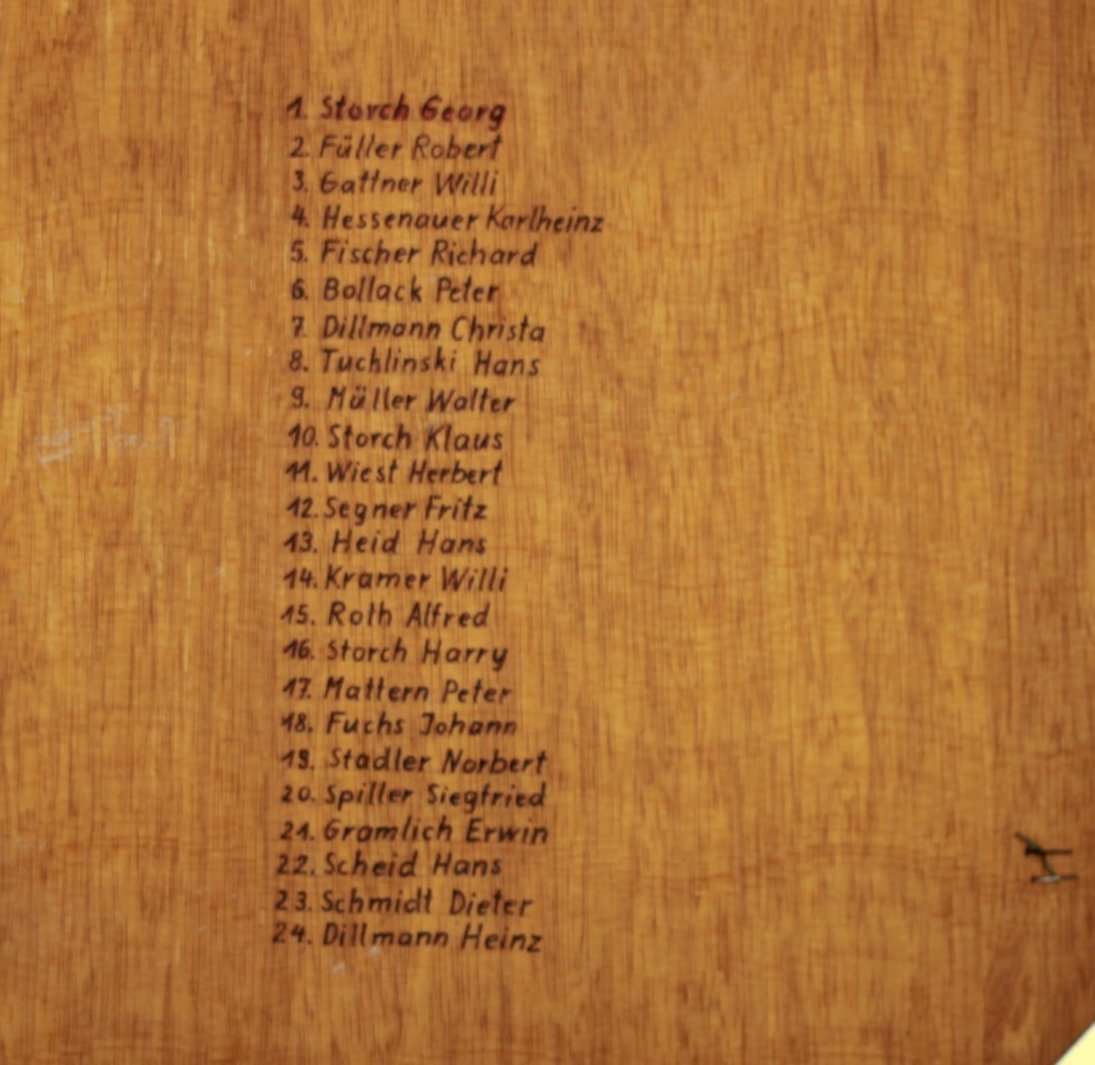 1. Storch Georg
2. Füller Robert
3. Gattner Willi
4. Hessenauer Karlheinz
5. Fischer Richard
6. Bollack Peter
7. Dillmann Christa
8. Tuchlinski Hans
9. Müller Walter
10. Storch Klaus
11. Wiest Herbert
12. Segner Fritz
13. Heid Hans
14. Kramer Willi
15. Roth Alfred
16. Storch Harry
17. Mattern Peter
18. Fuchs Johann
19. Stadler Norbert
20. Spiller Siegfried
21. Gramlich Erwin
22. Scheid Hans
23. Schmidt Dieter
24. Dillmann Heinz